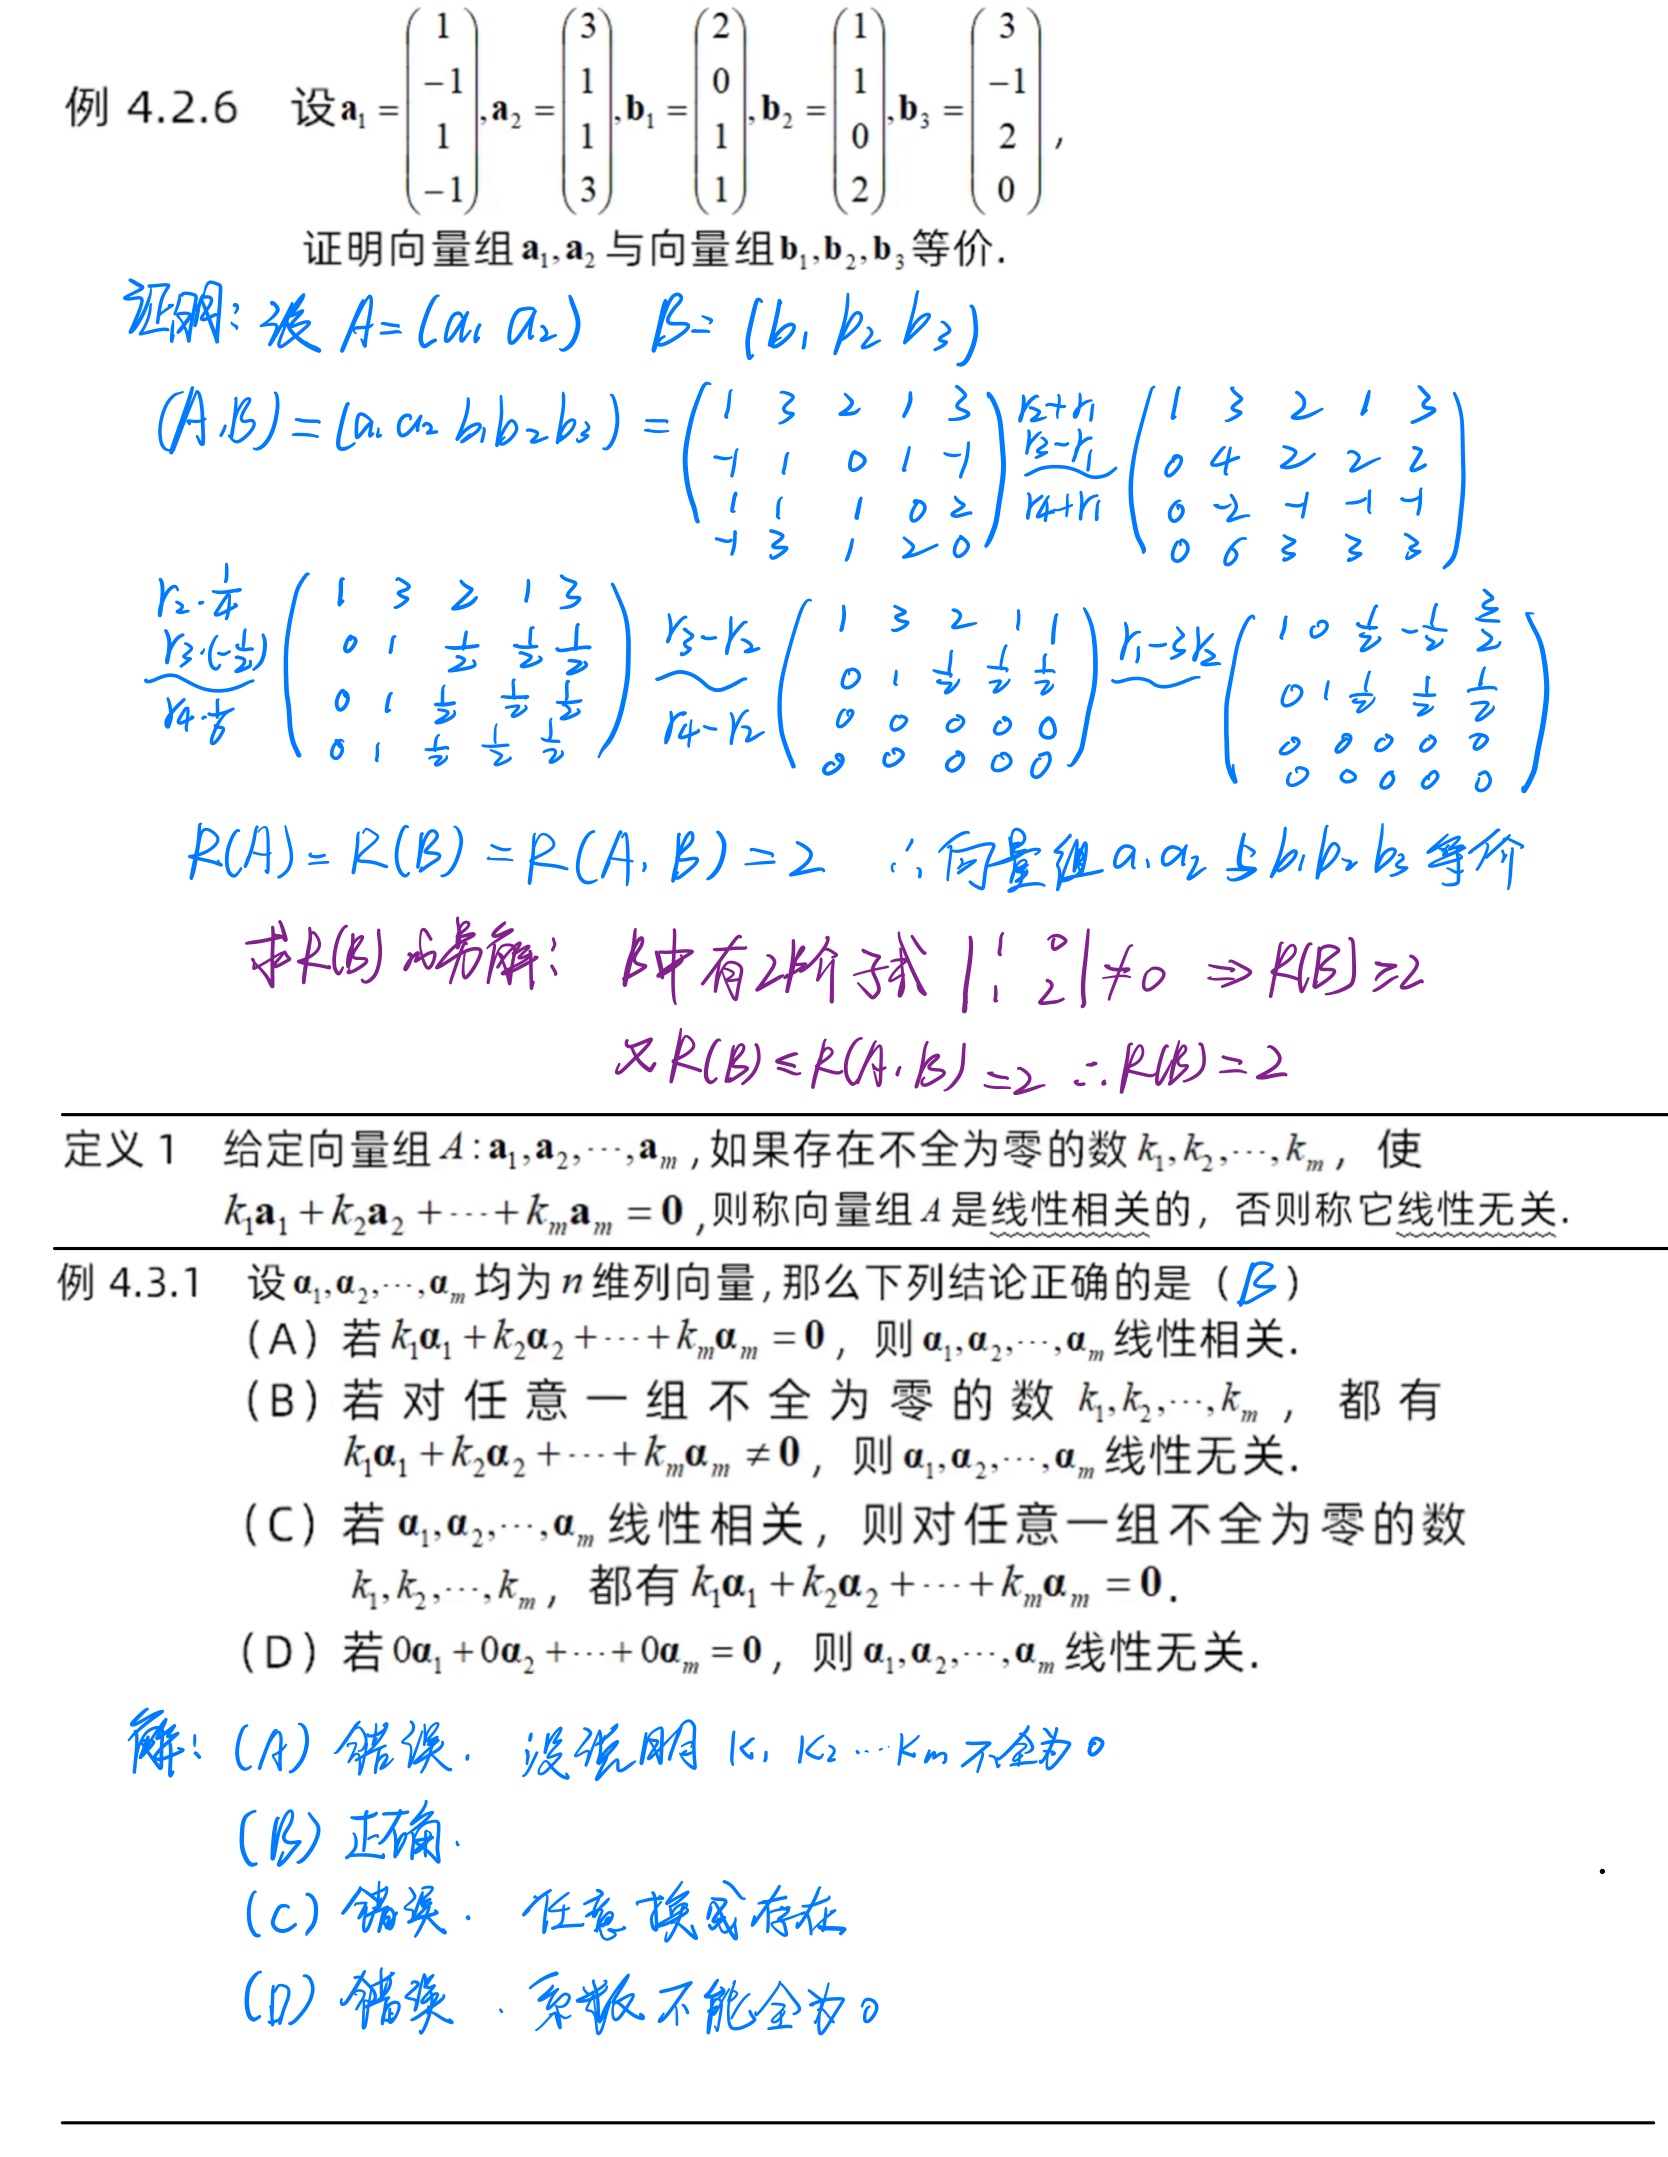 例 4.2.6 设 a₁ = (1, −1, 1, −1), a₂ = (3, 1, 1, 3), b₁ = (2, 0, 1, 1), b₂ = (1, 1, 0, 2), b₃ = (3, −1, 2, 0) ,
证明向量组 a₁, a₂ 与向量组 b₁, b₂, b₃ 等价.
证明: 设 A = (a₁ a₂) B = (b₁ b₂ b₃)
(A,B) = (a₁ a₂ b₁ b₂ b₃) = (1 3 2 1 3; −1 1 0 1 −1; 1 1 1 0 2; −1 3 1 2 0) r₂+r₁ r₃−r₁ r₄+r₁ (1 3 2 1 3; 0 4 2 2 2; 0 −2 −1 −1 −1; 0 6 3 3 3)
r₂·1/4 r₃·(−1/2) r₄·1/6 (1 3 2 1 3; 0 1 1/2 1/2 1/2; 0 1 1/2 1/2 1/2; 0 1 1/2 1/2 1/2) r₃−r₂ r₄−r₂ (1 3 2 1 1; 0 1 1/2 1/2 1/2; 0 0 0 0 0; 0 0 0 0 0) r₁−3r₂ (1 0 1/2 −1/2 3/2; 0 1 1/2 1/2 1/2; 0 0 0 0 0; 0 0 0 0 0)
R(A) = R(B) = R(A,B) = 2 ∴ 向量组 a₁ a₂ 与 b₁ b₂ b₃ 等价
求R(B)的另解: B中有2阶子式 |1 0; 1 2| ≠ 0 ⇒ R(B) ≥ 2
又 R(B) ≤ R(A,B) = 2 ∴ R(B) = 2
定义 1 给定向量组 A : a₁, a₂, ⋯, aₘ , 如果存在不全为零的数 k₁, k₂, ⋯, kₘ , 使
k₁a₁ + k₂a₂ + ⋯ + kₘaₘ = 0 , 则称向量组 A 是线性相关的, 否则称它线性无关.
例 4.3.1 设 α₁, α₂, ⋯, αₘ 均为 n 维列向量, 那么下列结论正确的是 ( B )
(A) 若 k₁α₁ + k₂α₂ + ⋯ + kₘαₘ = 0 , 则 α₁, α₂, ⋯, αₘ 线性相关.
(B) 若对任意一组不全为零的数 k₁, k₂, ⋯, kₘ , 都有
k₁α₁ + k₂α₂ + ⋯ + kₘαₘ ≠ 0 , 则 α₁, α₂, ⋯, αₘ 线性无关.
(C) 若 α₁, α₂, ⋯, αₘ 线性相关, 则对任意一组不全为零的数
k₁, k₂, ⋯, kₘ , 都有 k₁α₁ + k₂α₂ + ⋯ + kₘαₘ = 0 .
(D) 若 0α₁ + 0α₂ + ⋯ + 0αₘ = 0 , 则 α₁, α₂, ⋯, αₘ 线性无关.
解: (A) 错误. 没说明 k₁ k₂ ⋯ kₘ 不全为 0
(B) 正确.
(C) 错误. 任意换成存在
(D) 错误. 系数不能全为 0